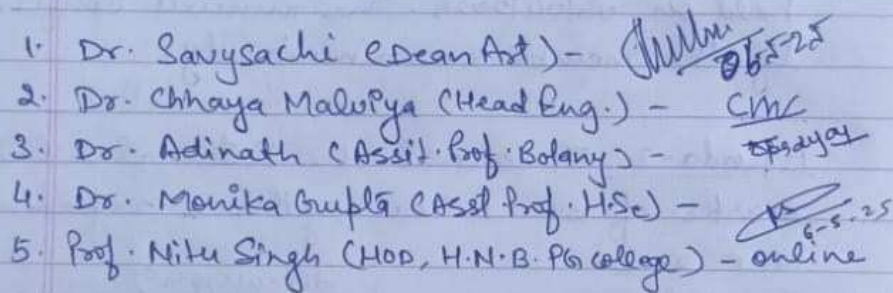 1. Dr. Savysachi (Dean Art) - 06-5-25
2. Dr. Chhaya Malviya (Head Eng.) - CMC
3. Dr. Adinath (Assit. Prof. Botany) -
4. Dr. Monika Gupta (Asst Prof. H.Sc) - 6-5-25
5. Prof. Nitu Singh (HOD, H.N.B. PG College) - online